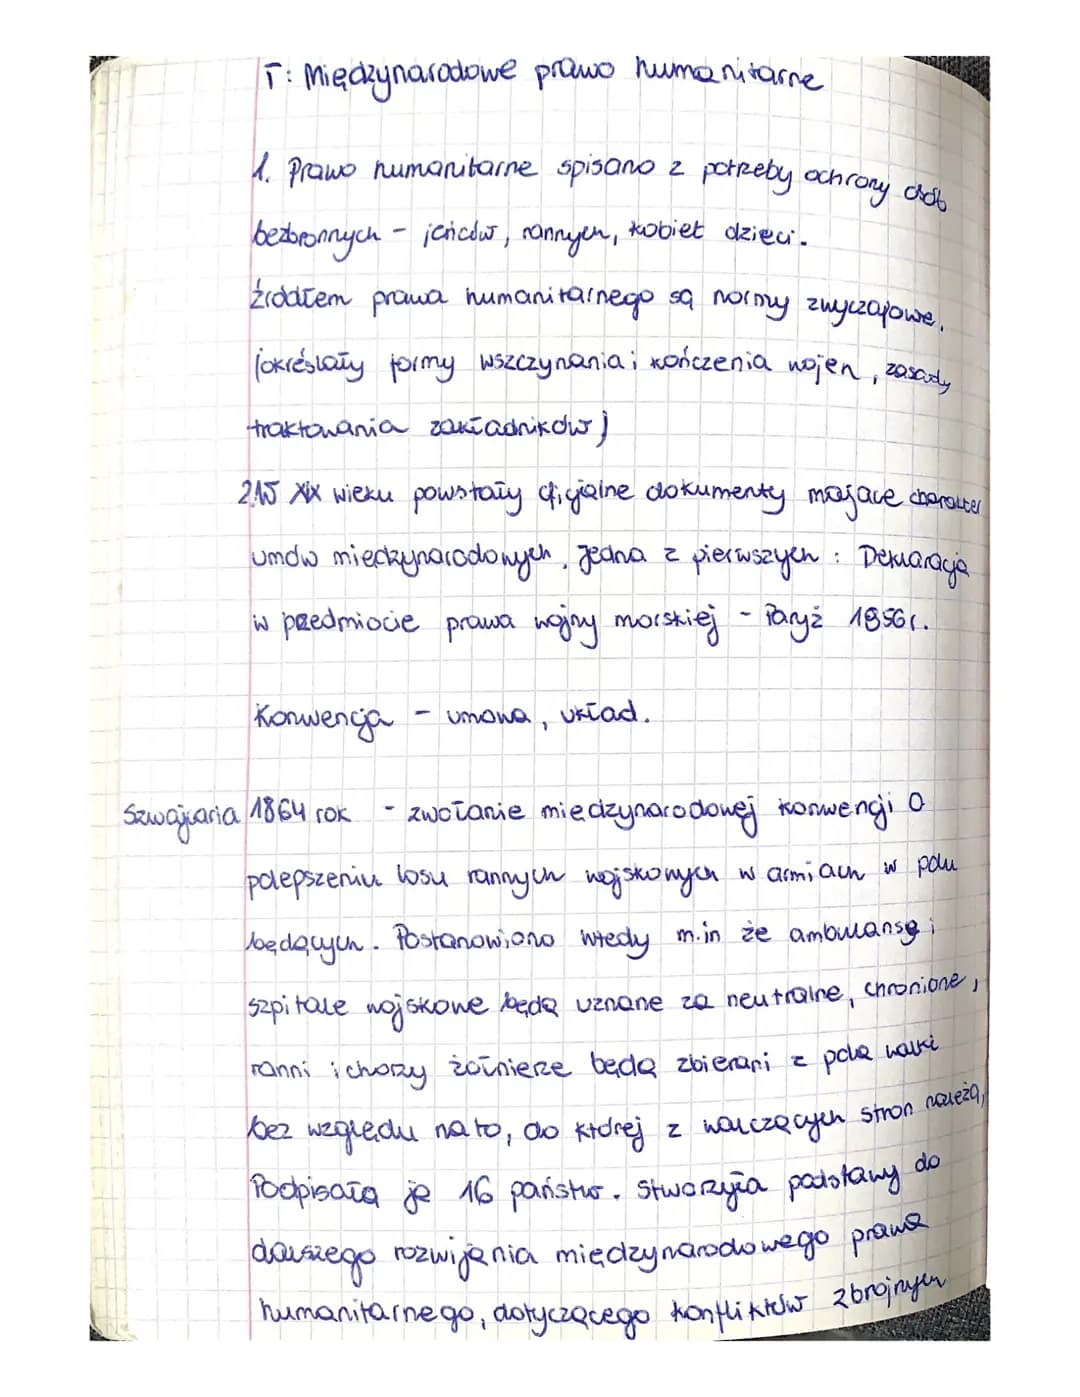 T: Międzynarodowe prawo humanitarne
1. Prawo humanitarne spisano z potrzeby ochrony osób
bezbronnych - jeńców, rannych, kobiet dzieci.
źródłem prawa humanitarnego są normy zwyczajowe.
(określały formy wszczynania i kończenia wojen, zasady
traktowania zakładników)
2. W XIX wieku powstały oficjalne dokumenty mające charakter
umów międzynarodowych. Jedna z pierwszych : Deklaracja
w przedmiocie prawa wojny morskiej - Paryż 1856r.
Konwencja - umowa, układ.
Szwajcaria 1864 rok - zwołanie międzynarodowej konwencji o
polepszeniu losu rannych wojskowych w armiach w polu
będących. Postanowiono wtedy m.in że ambulanse i
szpitale wojskowe będą uznane za neutralne, chronione,
ranni i chorzy żołnierze będą zbierani z pola walki
bez względu na to, do której z walczących stron należą,
Podpisała je 16 państw. Stworzyła podstawy do
dalszego rozwijania międzynarodowego prawa
humanitarnego, dotyczącego konfliktów zbrojnych